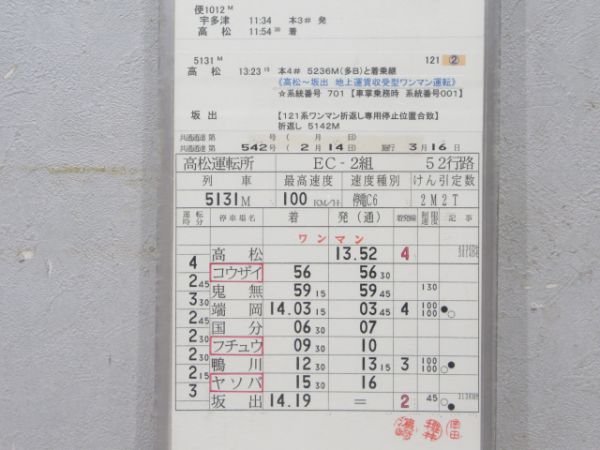 便1012M
宇多津 11:34 本3# 発
高松 11:54 30 着
5131M 121 ②
高松 13:23 15 本4# 5236M(多B)と着乗継
《高松～坂出 地上運賃収受型ワンマン運転》
☆系統番号 701【車掌乗務時 系統番号001】
坂出 【121系ワンマン折返し専用停止位置合致】
折返し 5142M
共通通達 第 号( 月 日)
共通通達 第 542 号( 2 月 14 日) 施行 3 月 16 日
高松運転所 EC-2組 52行路
列車 最高速度 速度種別 けん引定数
5131M 100KM/H 停電C6 2M2T
運転時分 停車場名 着 発(通) 着発線 制限速度 記事
ワンマン
高松 13.52 4
4
コウザイ 56 56 30
2 45
鬼無 59 15 59 45 130
3 30
端岡 14.03 15 03 45 4 100 100 ●○
2 45
国分 06 30 07
2 30
フチュウ 09 30 10
2 30
鴨川 12 30 13 15 3 100 100 ○●
2 15
ヤソバ 15 30 16
3
坂出 14.19 = 2 45 ○●